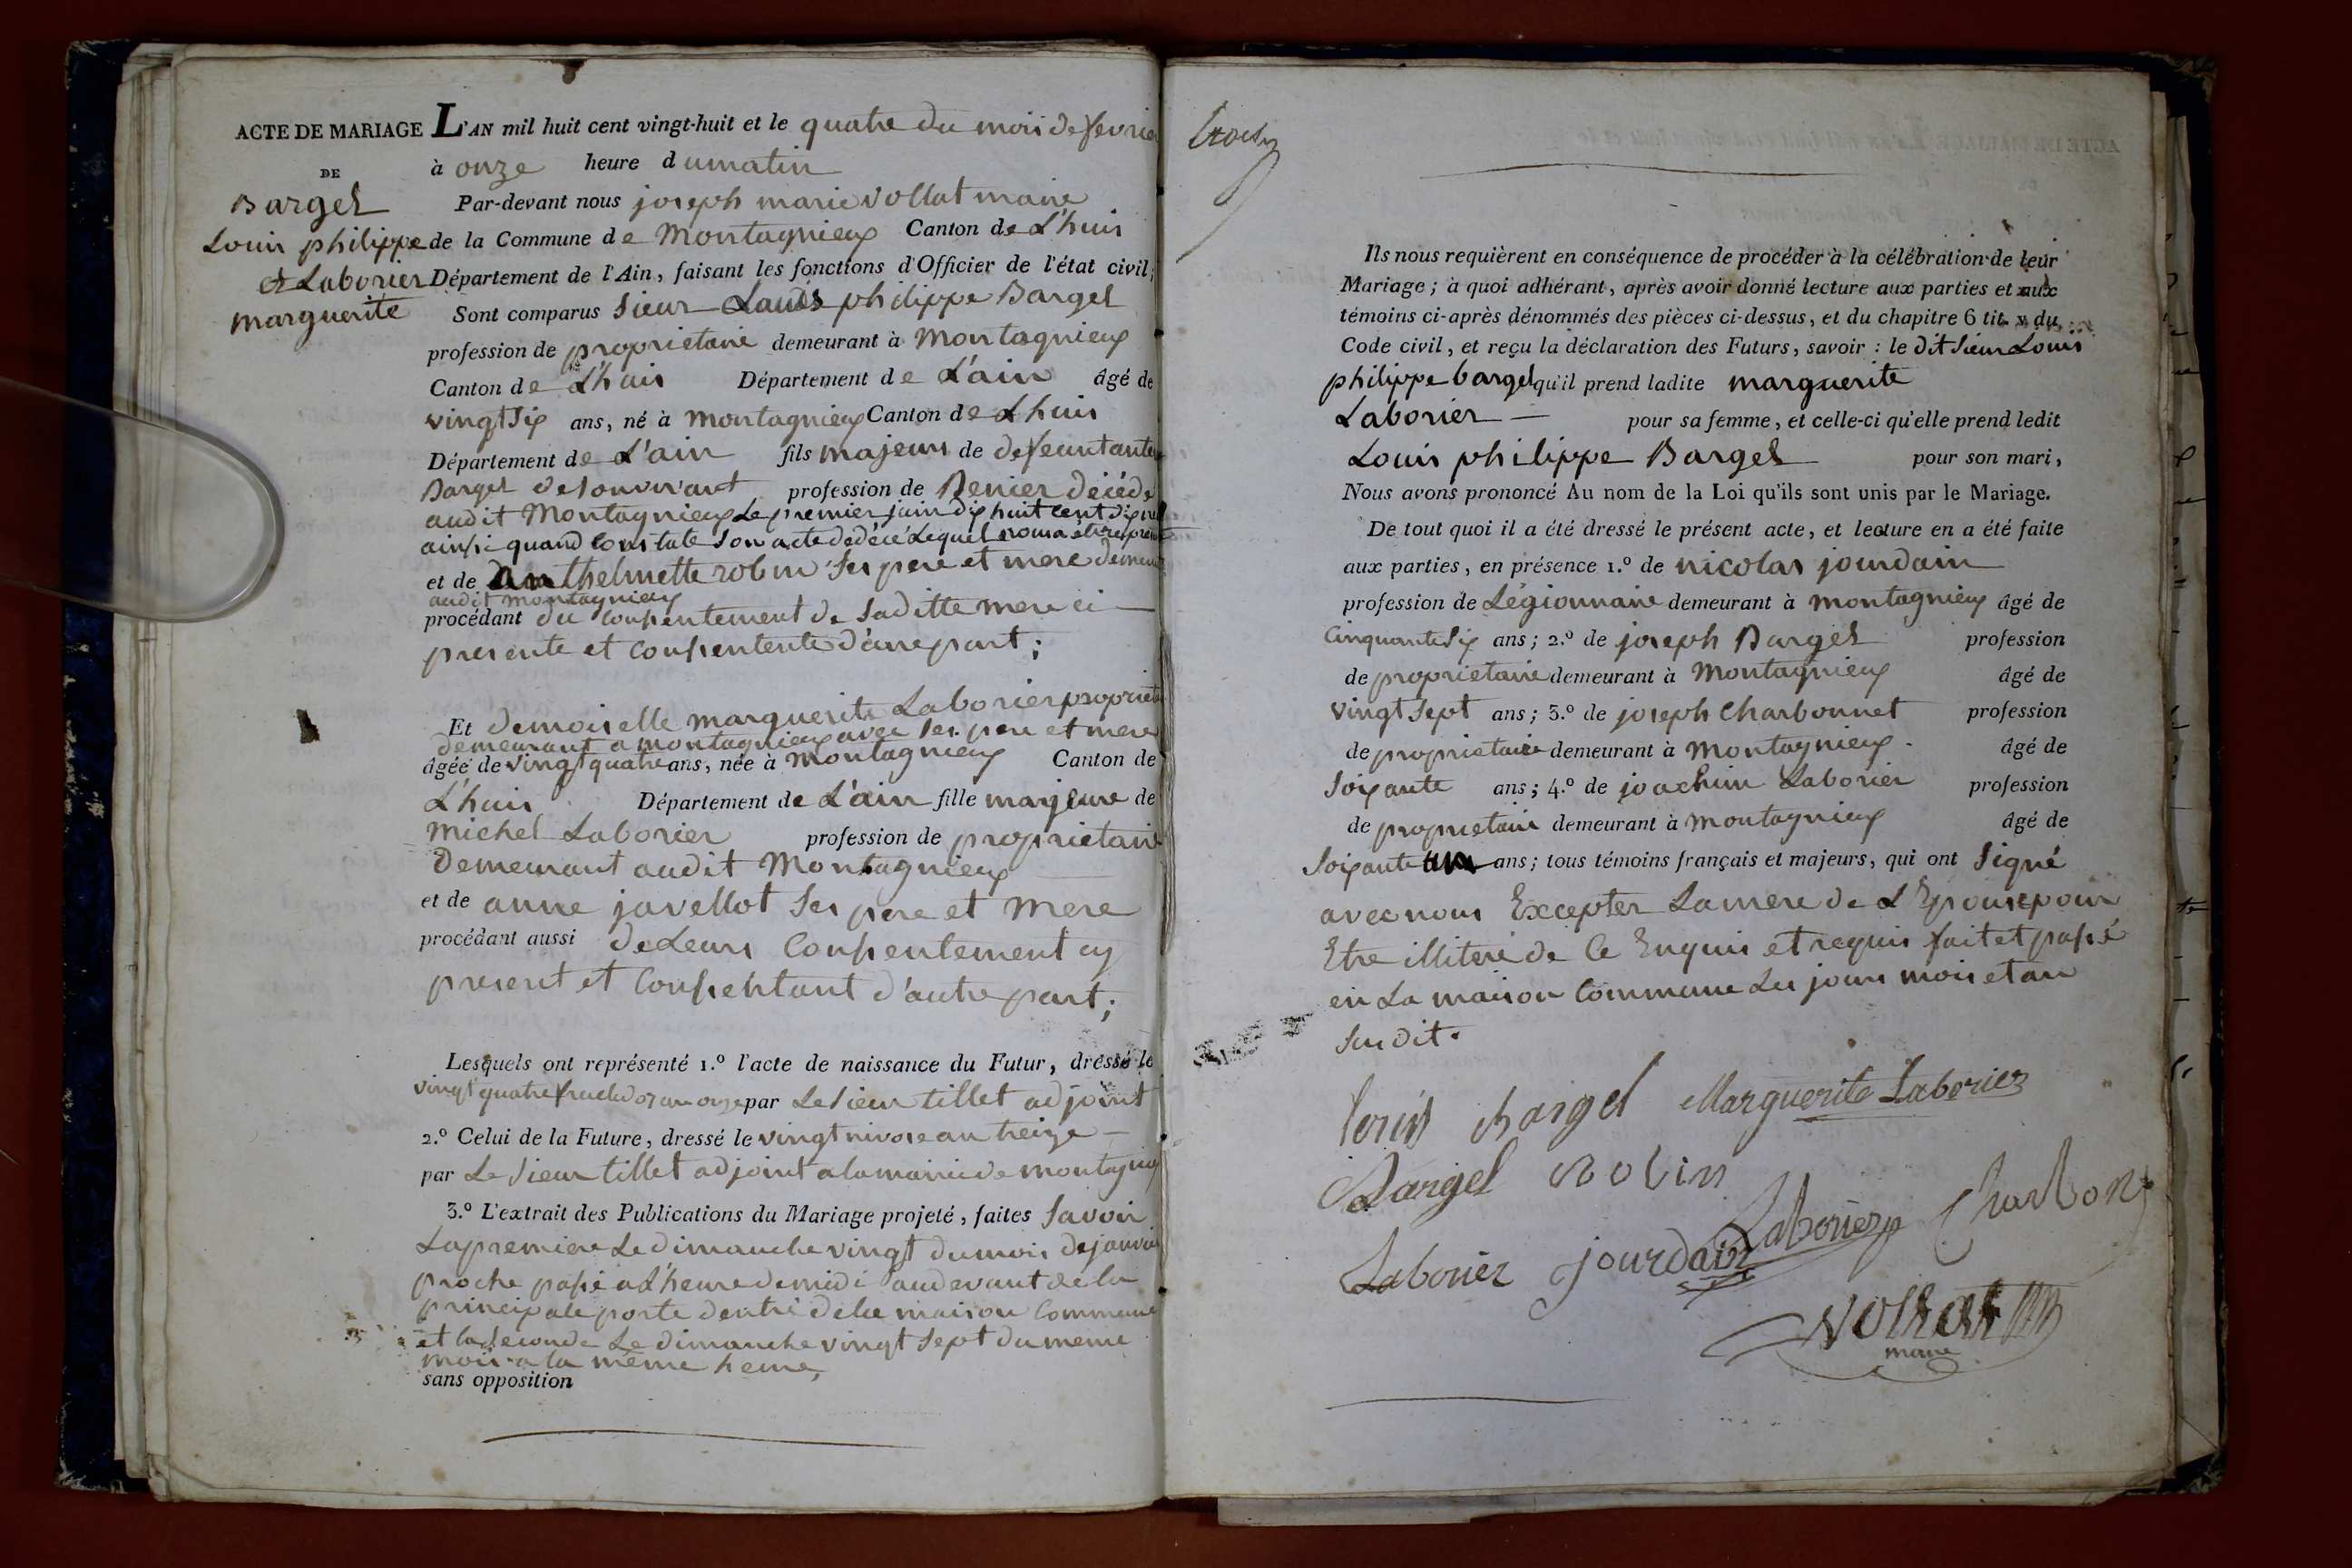 ACTE DE MARIAGE
DE
Bargel
Louis philippe
et Laborier
marguerite
L'AN mil huit cent vingt-huit et le quatre du mois de fevrier
à onze heure du matin
Par-devant nous joseph marie vollat maire
de la Commune de Montagnieux Canton de L'huis
Département de l'Ain, faisant les fonctions d'Officier de l'état civil;
Sont comparus Sieur Louis philippe Bargel
profession de proprietaire demeurant à Montagnieux
Canton de L'huis Département de L'ain âgé de
vingt Six ans, né à montagnieux Canton de L huis
Département de L'ain fils majeur de defeunt
Bargel de son vivant profession de décédé
audit Montagnieux Le premier juin dix huit cent dix
ainsi quand constate Son acte de décé Lequel nous a
et de anthelmette robin Ses pere et mere
audit montagnieux
procédant du consentement de Saditte mere ci
presente et consentente d'une part;
Et demoiselle marguerite Laborier
demeurant a montagnieux avec Ses pere et mere
âgée de vingt quatre ans, née à montagnieux Canton de
L'huis Département de L'ain fille marjeure de
michel Laborier profession de proprietaire
Demeurant audit Montagnieux
et de anne javellot Ses pere et mere
procédant aussi de Leurs consentement cy
present et Consentant d'autre part;
Lesquels ont représenté 1.º l'acte de naissance du Futur, dressé le
vingt quatre an onze par Le Sieur tillet adjoint
2.º Celui de la Future, dressé le vingt nivose an treize
par Le Sieur tillet adjoint a la mairie de montagnieux
3.º L'extrait des Publications du Mariage projeté, faites Savoir
La premiere Le dimanche vingt du mois de janvier
proche passé a L'heure de midi audevant de la
principale porte dentré de la maison Commune
et la Seconde Le dimanche vingt Sept du meme
mois a la même heure,
sans opposition
Ils nous requièrent en conséquence de procéder à la célébration de leur
Mariage; à quoi adhérant, après avoir donné lecture aux parties et aux
témoins ci-après dénommés des pièces ci-dessus, et du chapitre 6 tit. v du
Code civil, et reçu la déclaration des Futurs, savoir : le dit Sieur Louis
philippe bargel qu'il prend ladite marguerite
Laborier pour sa femme, et celle-ci qu'elle prend ledit
Louis philippe Bargel pour son mari,
Nous avons prononcé Au nom de la Loi qu'ils sont unis par le Mariage.
De tout quoi il a été dressé le présent acte, et lecture en a été faite
aux parties, en présence 1.º de nicolas jourdain
profession de Légionnaire demeurant à montagnieux âgé de
Cinquante Six ans; 2.º de joseph Bargel profession
de proprietaire demeurant à Montagnieux âgé de
vingt Sept ans; 3.º de joseph Charbonnet profession
de proprietaire demeurant à Montagnieux. âgé de
Soixante ans; 4.º de joachim Laborier profession
de proprietaire demeurant à montagnieux âgé de
Soixante un ans; tous témoins français et majeurs, qui ont Signé
avec nous Excepter La mere de L'Epouse pour
Etre illiteré de Ce Enquis et requis fait et passé
en La maison Commune Les jours mois et an
Sus dit.
Louis Bargel Marguerite Laborier
Bargel Robin
Laborier Charbon
Laborier jourdain
vollat
maire